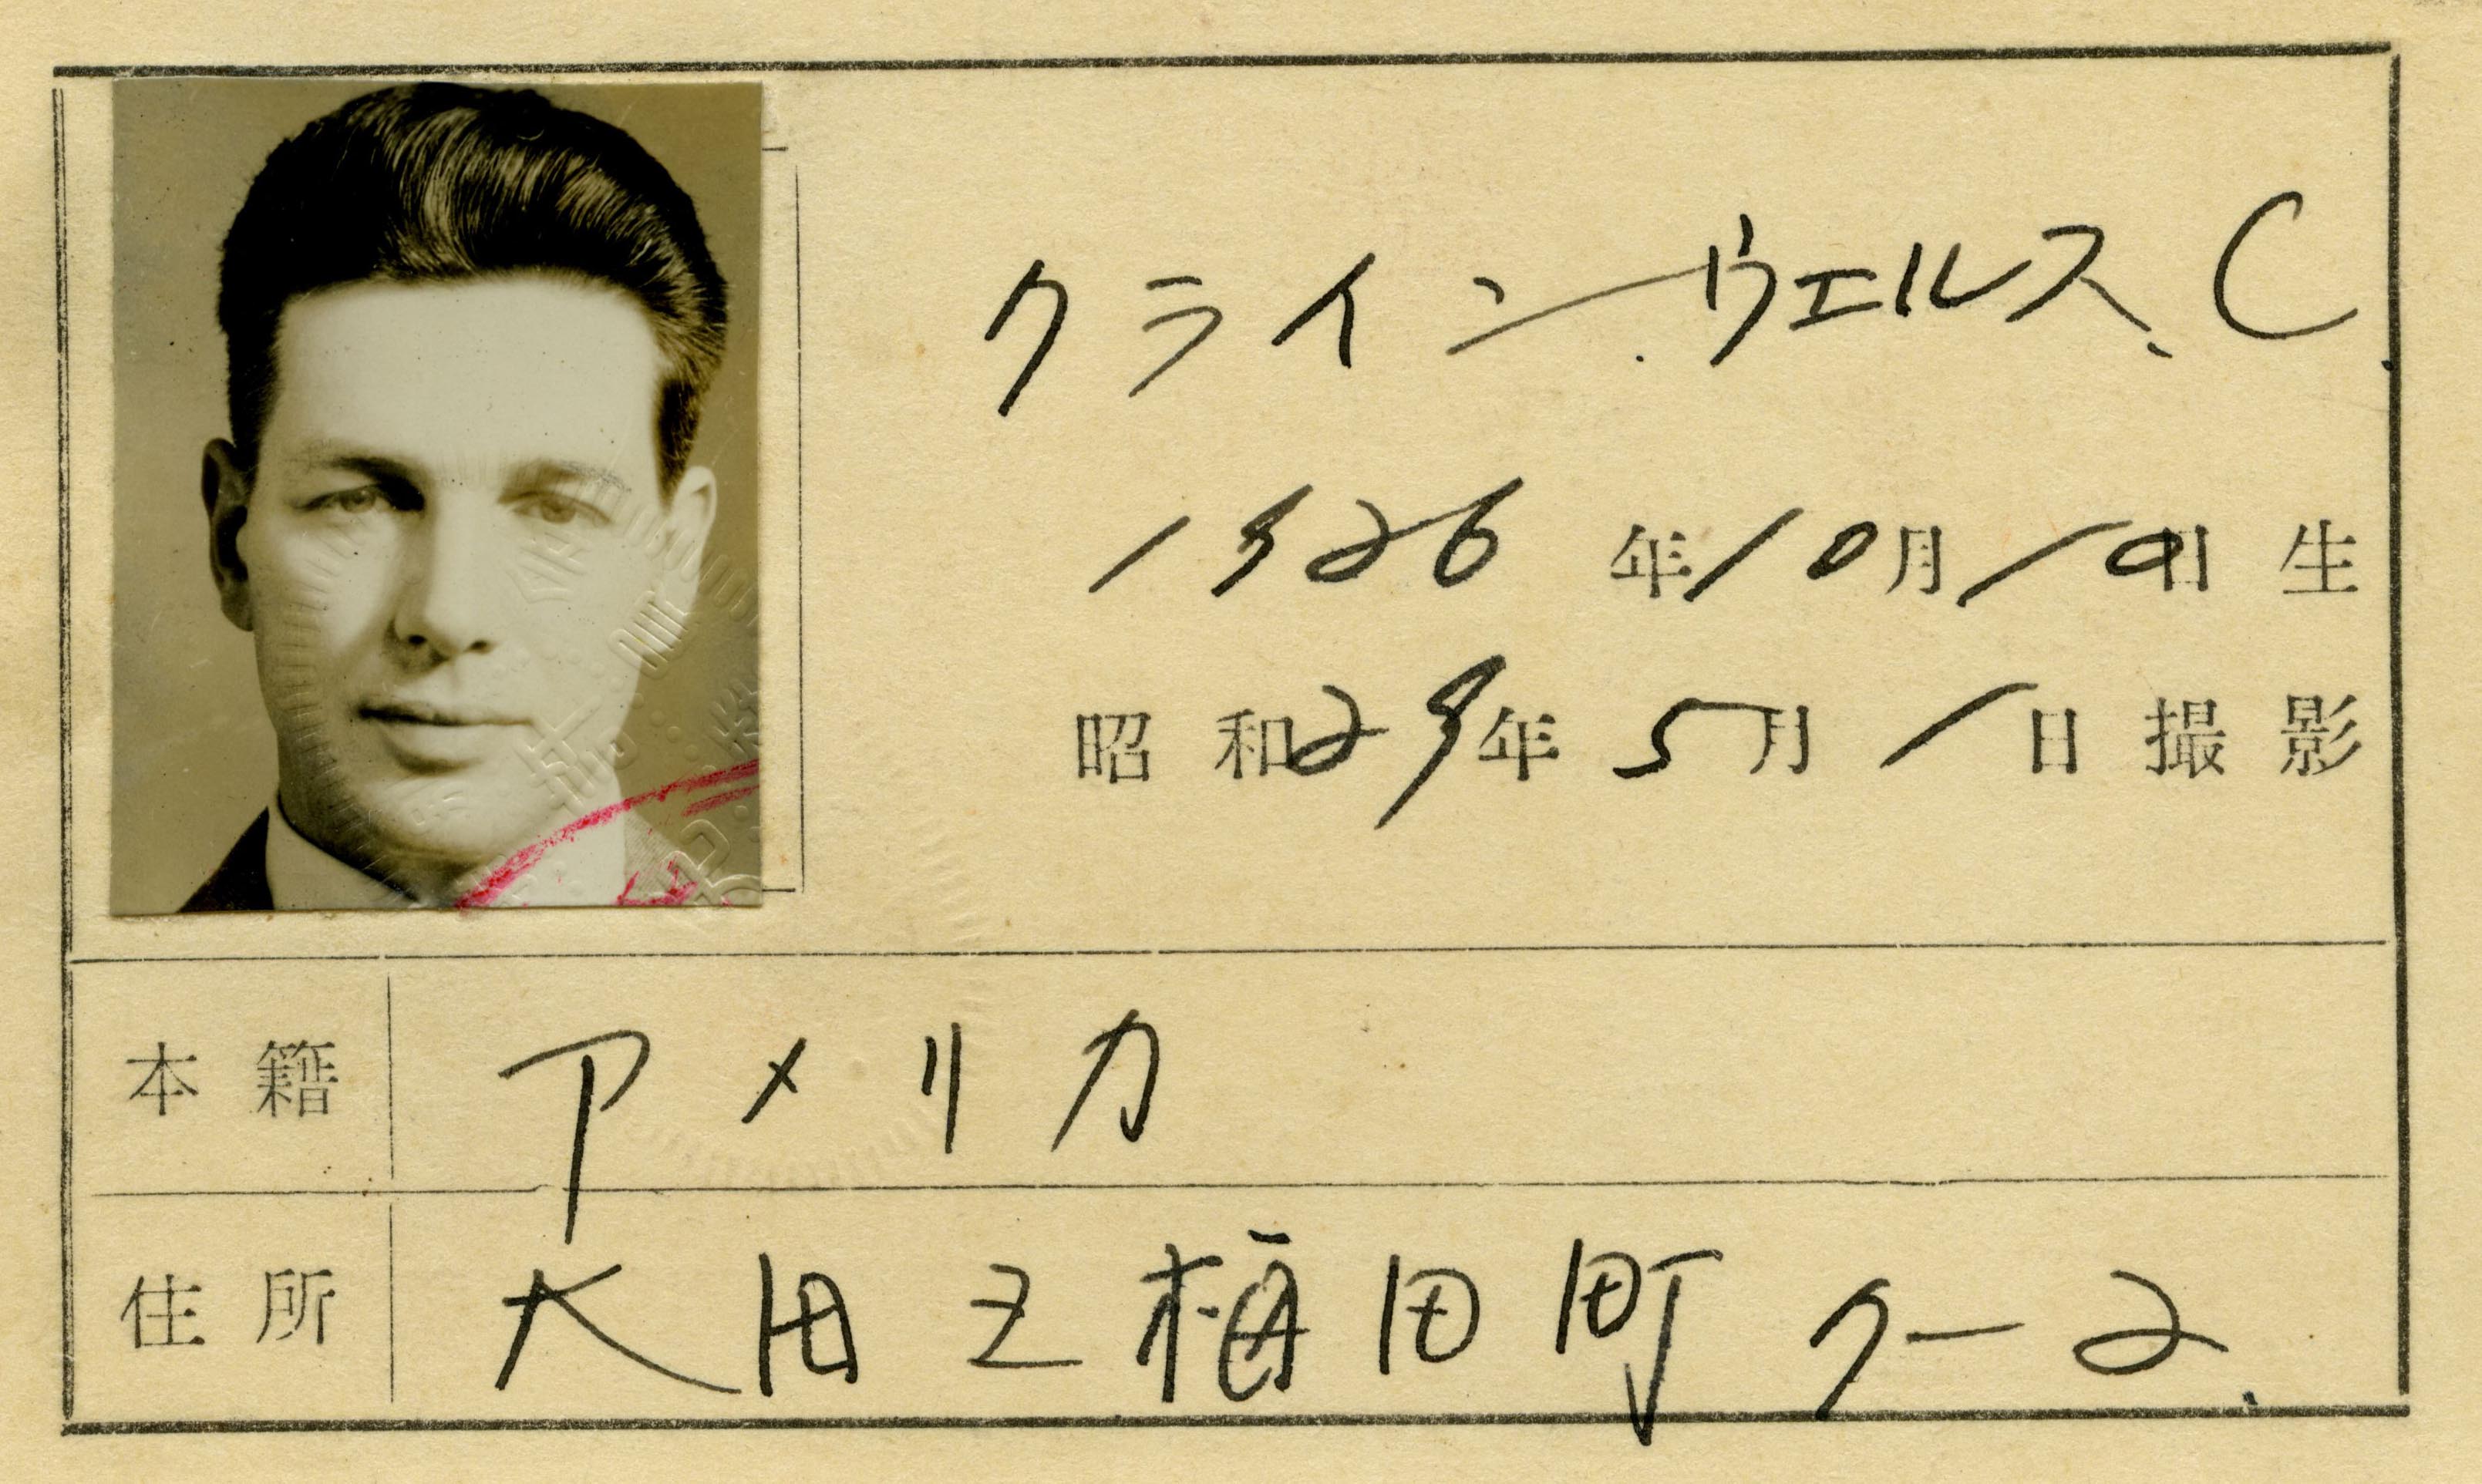 クライン ヴェルス、C.
1926年10月10日生
昭和29年5月1日撮影
本籍 アメリカ
住所 大田区梅田町7-2.